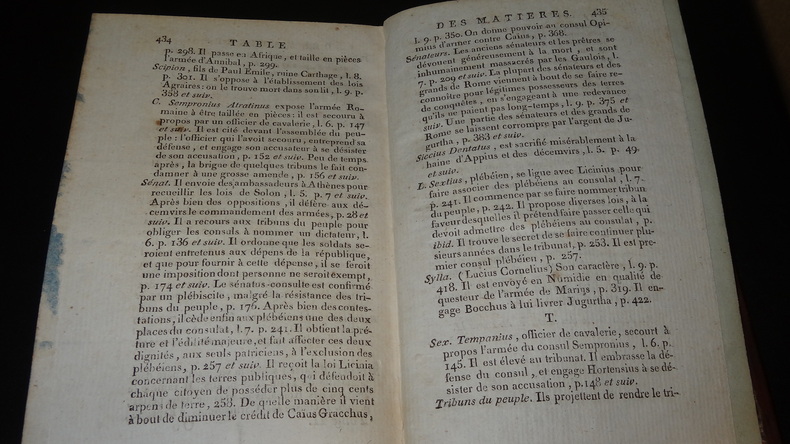 434 TABLE
p. 298. Il passe en Afrique, et taille en pièces
l'armée d'Annibal, p. 299.
Scipion, fils de Paul Emile, ruine Carthage, l. 8.
p. 301. Il s'oppose à l'établissement des lois
Agraires: on le trouve mort dans son lit, l. 9. p.
358 et suiv.
C. Sempronius Atratinus expose l'armée Ro-
maine à être taillée en pièces: il est secouru à
propos par un officier de cavalerie, l. 6. p. 147
et suiv. Il est cité devant l'assemblée du peu-
ple: l'officier qui l'avoit secouru, entreprend sa
défense, et engage son accusateur à se désister
de son accusation, p. 152 et suiv. Peu de temps
après, la brigue de quelques tribuns le fait con-
damner à une grosse amende, p. 156 et suiv.
Sénat. Il envoie des ambassadeurs à Athènes pour
recueillir les lois de Solon, l. 5. p. 7 et suiv.
Après bien des oppositions, il défère aux dé-
cemvirs le commandement des armées, p. 28 et
suiv. Il a recours aux tribuns du peuple pour
obliger les consuls à nommer un dictateur, l.
6. p. 136 et suiv. Il ordonne que les soldats se-
roient entretenus aux dépens de la république,
et que pour fournir à cette dépense, il se feroit
une imposition dont personne ne seroit exempt,
p. 174 et suiv. Le sénatus-consulte est confirmé
par un plébiscite, malgré la résistance des tri-
buns du peuple, p. 176. Après bien des contes-
tations, il cède enfin aux plébéiens une des deux
places du consulat, l. 7. p. 241. Il obtient la pré-
ture et l'édilité majeure, et fait affecter ces deux
dignités, aux seuls patriciens, à l'exclusion des
plébéiens, p. 257 et suiv. Il reçoit la loi Licinia
concernant les terres publiques, qui défendoit à
chaque citoyen de posséder plus de cinq cents
arpens de terre, 258. De quelle manière il vient
à bout de diminuer le crédit de Caïus Gracchus,
DES MATIERES. 435
l. 9. p. 350. On donne pouvoir au consul Opi-
mius d'armer contre Caïus, p. 368.
Sénateurs. Les anciens sénateurs et les prêtres se
dévouent généreusement à la mort, et sont
inhumainement massacrés par les Gaulois, l.
7. p. 209 et suiv. La plupart des sénateurs et des
grands de Rome viennent à bout de se faire re-
connoître pour légitimes possesseurs des terres
de conquêtes, en s'engageant à une redevance
qu'ils ne paient pas long-temps, l. 9. p. 375 et
suiv. Une partie des sénateurs et des grands de
Rome se laissent corrompre par l'argent de Ju-
gurtha, p. 383 et suiv.
Siccius Dentatus, est sacrifié misérablement à la
haine d'Appius et des décemvirs, l. 5. p. 49.
et suiv.
L. Sextius, plébéien, se ligue avec Licinius pour
faire associer des plébéiens au consulat, l. 7.
p. 241. Il commence par se faire nommer tribun
du peuple, p. 242. Il propose diverses lois, à la
faveur desquelles il prétend faire passer celle qui
devoit admettre des plébéiens au consulat, p.
ibid. Il trouve le secret de se faire continuer plu-
sieurs années dans le tribunat, p. 253. Il est pre-
mier consul plébéien, p. 257.
Sylla. (Lucius Cornelius) Son caractère, l. 9. p.
418. Il est envoyé en Numidie en qualité de
questeur de l'armée de Marius, p. 319. Il en-
gage Bocchus à lui livrer Jugurtha, p. 422.
T.
Sex. Tempanius, officier de cavalerie, secourt à
propos l'armée du consul Sempronius, l. 6. p.
145. Il est élevé au tribunat. Il embrasse la dé-
fense du consul, et engage Hortensius à se dé-
sister de son accusation, p. 148 et suiv.
Tribuns du peuple. Ils projettent de rendre le tri-